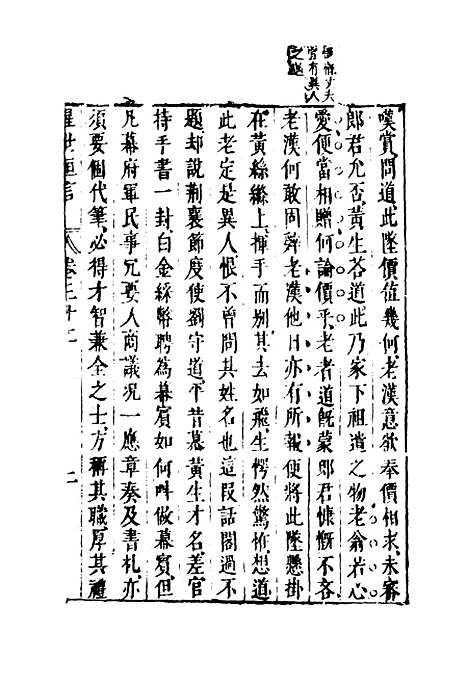 伍條丈夫
皆有異人
之遇
嘆賞問道此墜價值幾何老漢意欲奉價相求未審
郎君允否黃生荅道此乃家下祖遺之物老翁若心
愛便當相贈何論價乎老者道既蒙郎君慷慨不吝
老漢何敢固辤老漢他日亦有所報便將此墜懸掛
在黃絲縧上揮手而別其去如飛生愕然驚怪想道
此老定是異人恨不曾問其姓名也這段話閣過不
題却說荆襄節度使劉守道平昔慕黃生才名差官
持手書一封白金綵幣聘為幕賓如何叫做幕賓但
凡幕府軍民事冗要人商議况一應章奏及書札亦
須要個代筆必得才智兼全之士方稱其職厚其禮
醒世恒言
卷三十二
二